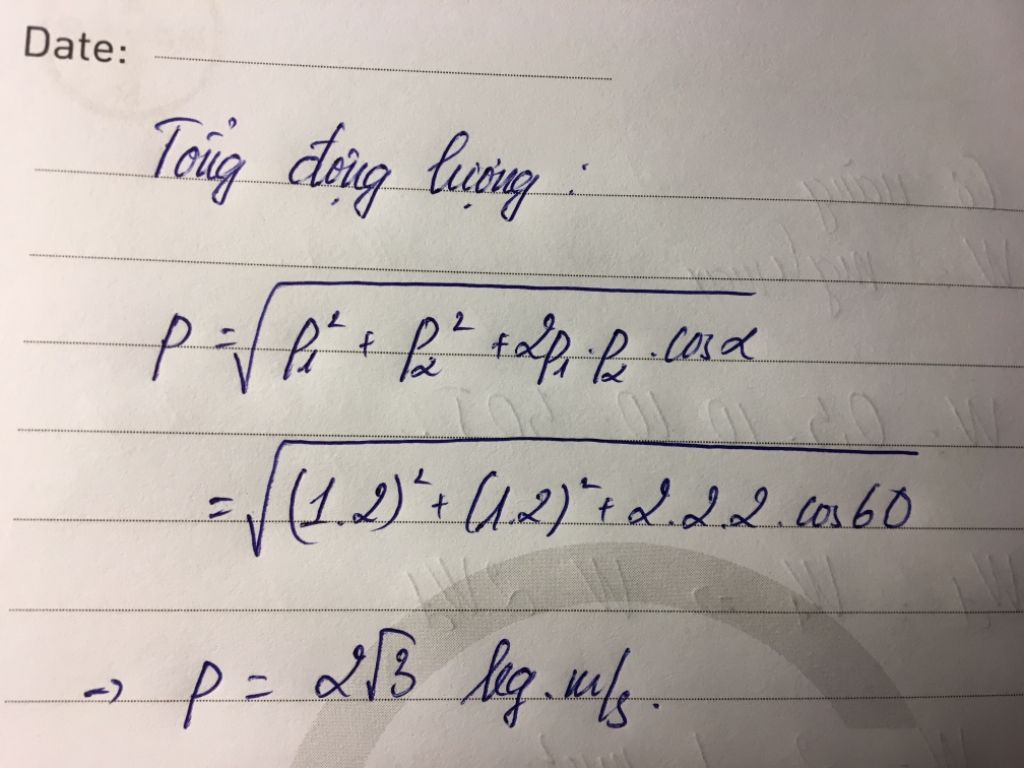 Date:
Tổng động lượng :
p = √(p₁² + p₂² + 2p₁.p₂.cosα)
= √((1.2)² + (1.2)² + 2.2.2.cos60)
→ p = 2√3 kg.m/s.